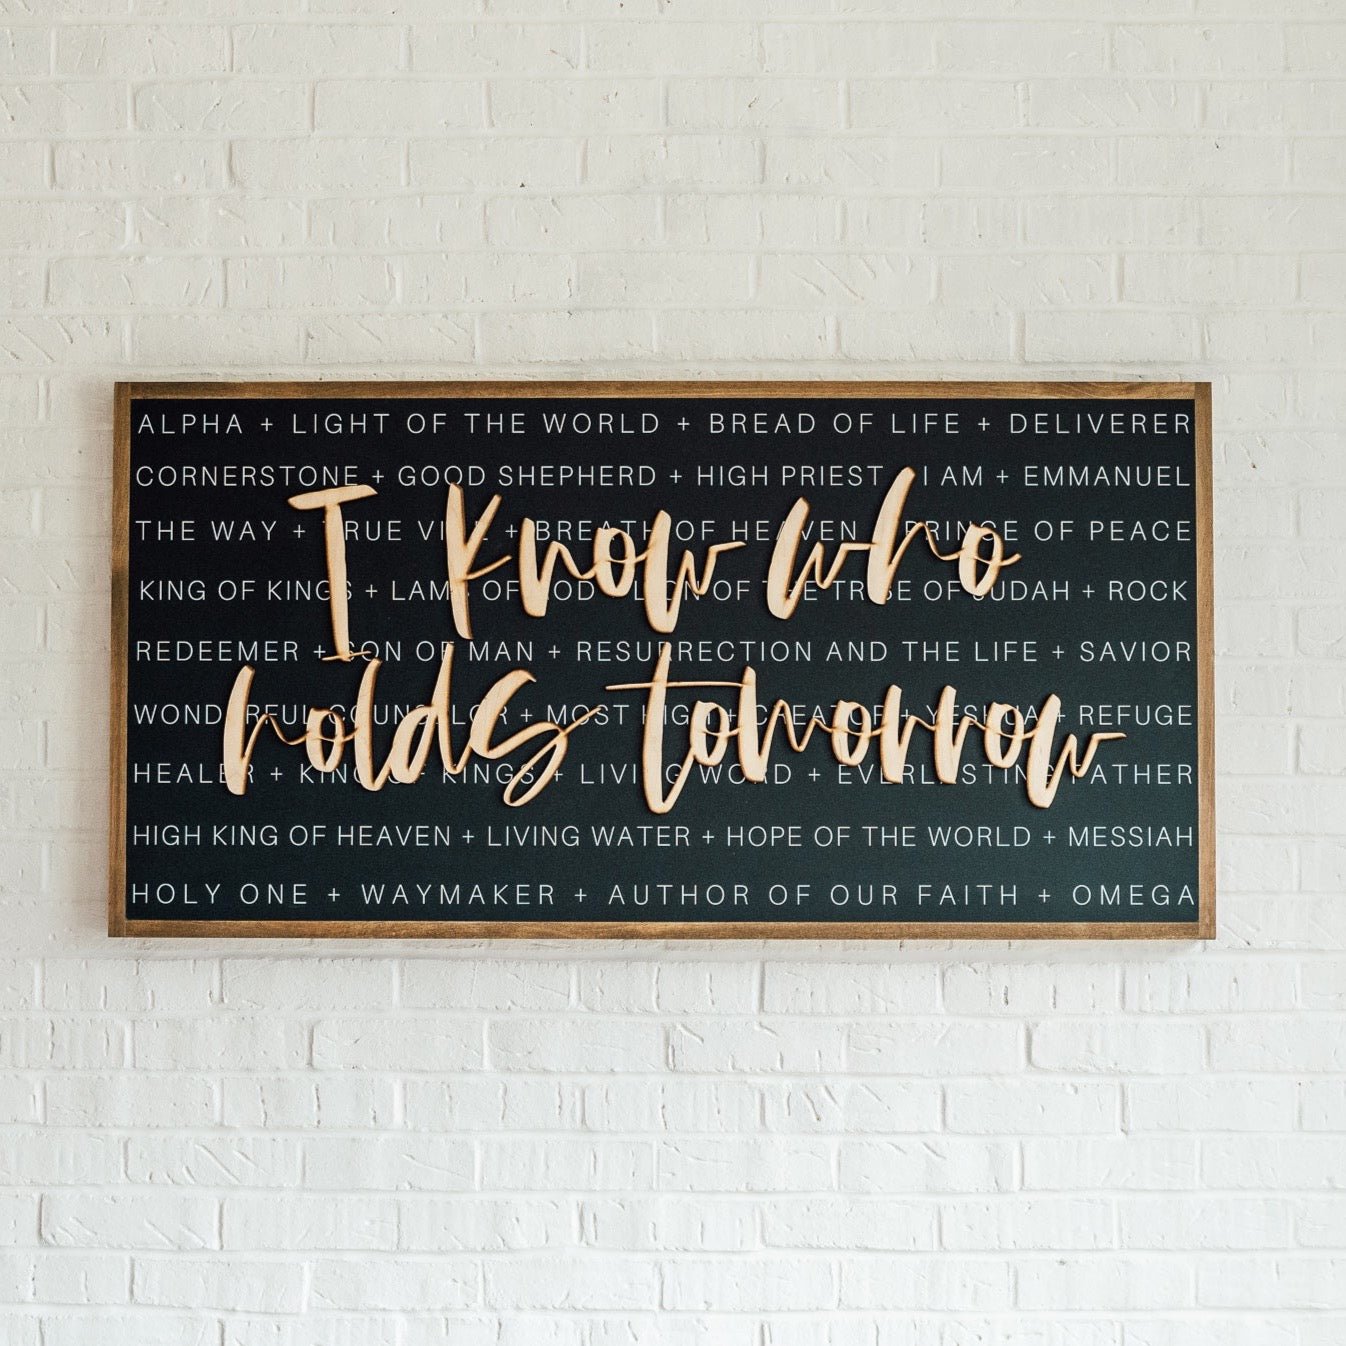 ALPHA + LIGHT OF THE WORLD + BREAD OF LIFE + DELIVERER
CORNERSTONE + GOOD SHEPHERD + HIGH PRIEST + I AM + EMMANUEL
THE WAY + TRUE VINE + BREATH OF HEAVEN + PRINCE OF PEACE
KING OF KINGS + LAMB OF GOD + LION OF THE TRIBE OF JUDAH + ROCK
REDEEMER + SON OF MAN + RESURRECTION AND THE LIFE + SAVIOR
WONDERFUL COUNSELOR + MOST HIGH + CREATOR + YESHUA + REFUGE
HEALER + KING OF KINGS + LIVING WORD + EVERLASTING FATHER
HIGH KING OF HEAVEN + LIVING WATER + HOPE OF THE WORLD + MESSIAH
HOLY ONE + WAYMAKER + AUTHOR OF OUR FAITH + OMEGA
I know who
holds tomorrow